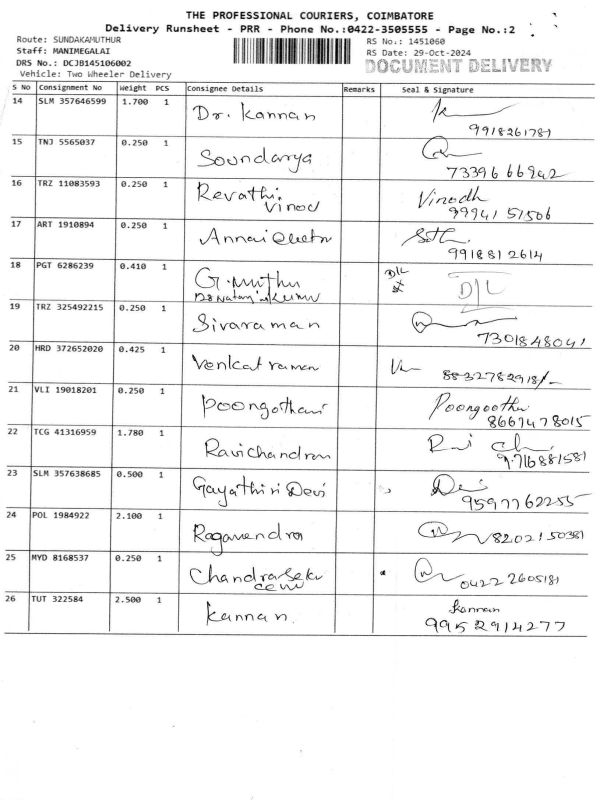 THE PROFESSIONAL COURIERS, COIMBATORE
Delivery Runsheet - PRR - Phone No.:0422-3505555 - Page No.:2
Route: SUNDAKAMUTHUR
RS No.: 1451060
Staff: MANIMEGALAI
RS Date: 29-Oct-2024
DRS No.: DCJB145106002
DOCUMENT DELIVERY
Vehicle: Two Wheeler Delivery
S No Consignment No Weight PCS Consignee Details Remarks Seal & Signature
14 SLM 357646599 1.700 1 Dr. Kannan
9918261781
15 TNJ 5565037 0.250 1 Soundarya
7339666942
16 TRZ 11083593 0.250 1 Revathi Vinodh
Vinod 99941 51506
17 ART 1910894 0.250 1
9918812614
18 PGT 6286239 0.410 1 G.muthu D/L D/L
19 TRZ 325492215 0.250 1 Sivaraman
7301848041
20 HRD 372652020 0.425 1 Venkatraman
8832782918/-
21 VLI 19018201 0.250 1 Poongothai Poongothai
8667478015
22 TCG 41316959 1.780 1 Ravichandran
9716881581
23 SLM 357638685 0.500 1 Gayathiri Devi Devi
9597762255
24 POL 1984922 2.100 1 Ragavendra 8202150381
25 MYD 8168537 0.250 1 Chandrasek
04222605181
26 TUT 322584 2.500 1 Kannan. Kannan
9952914277